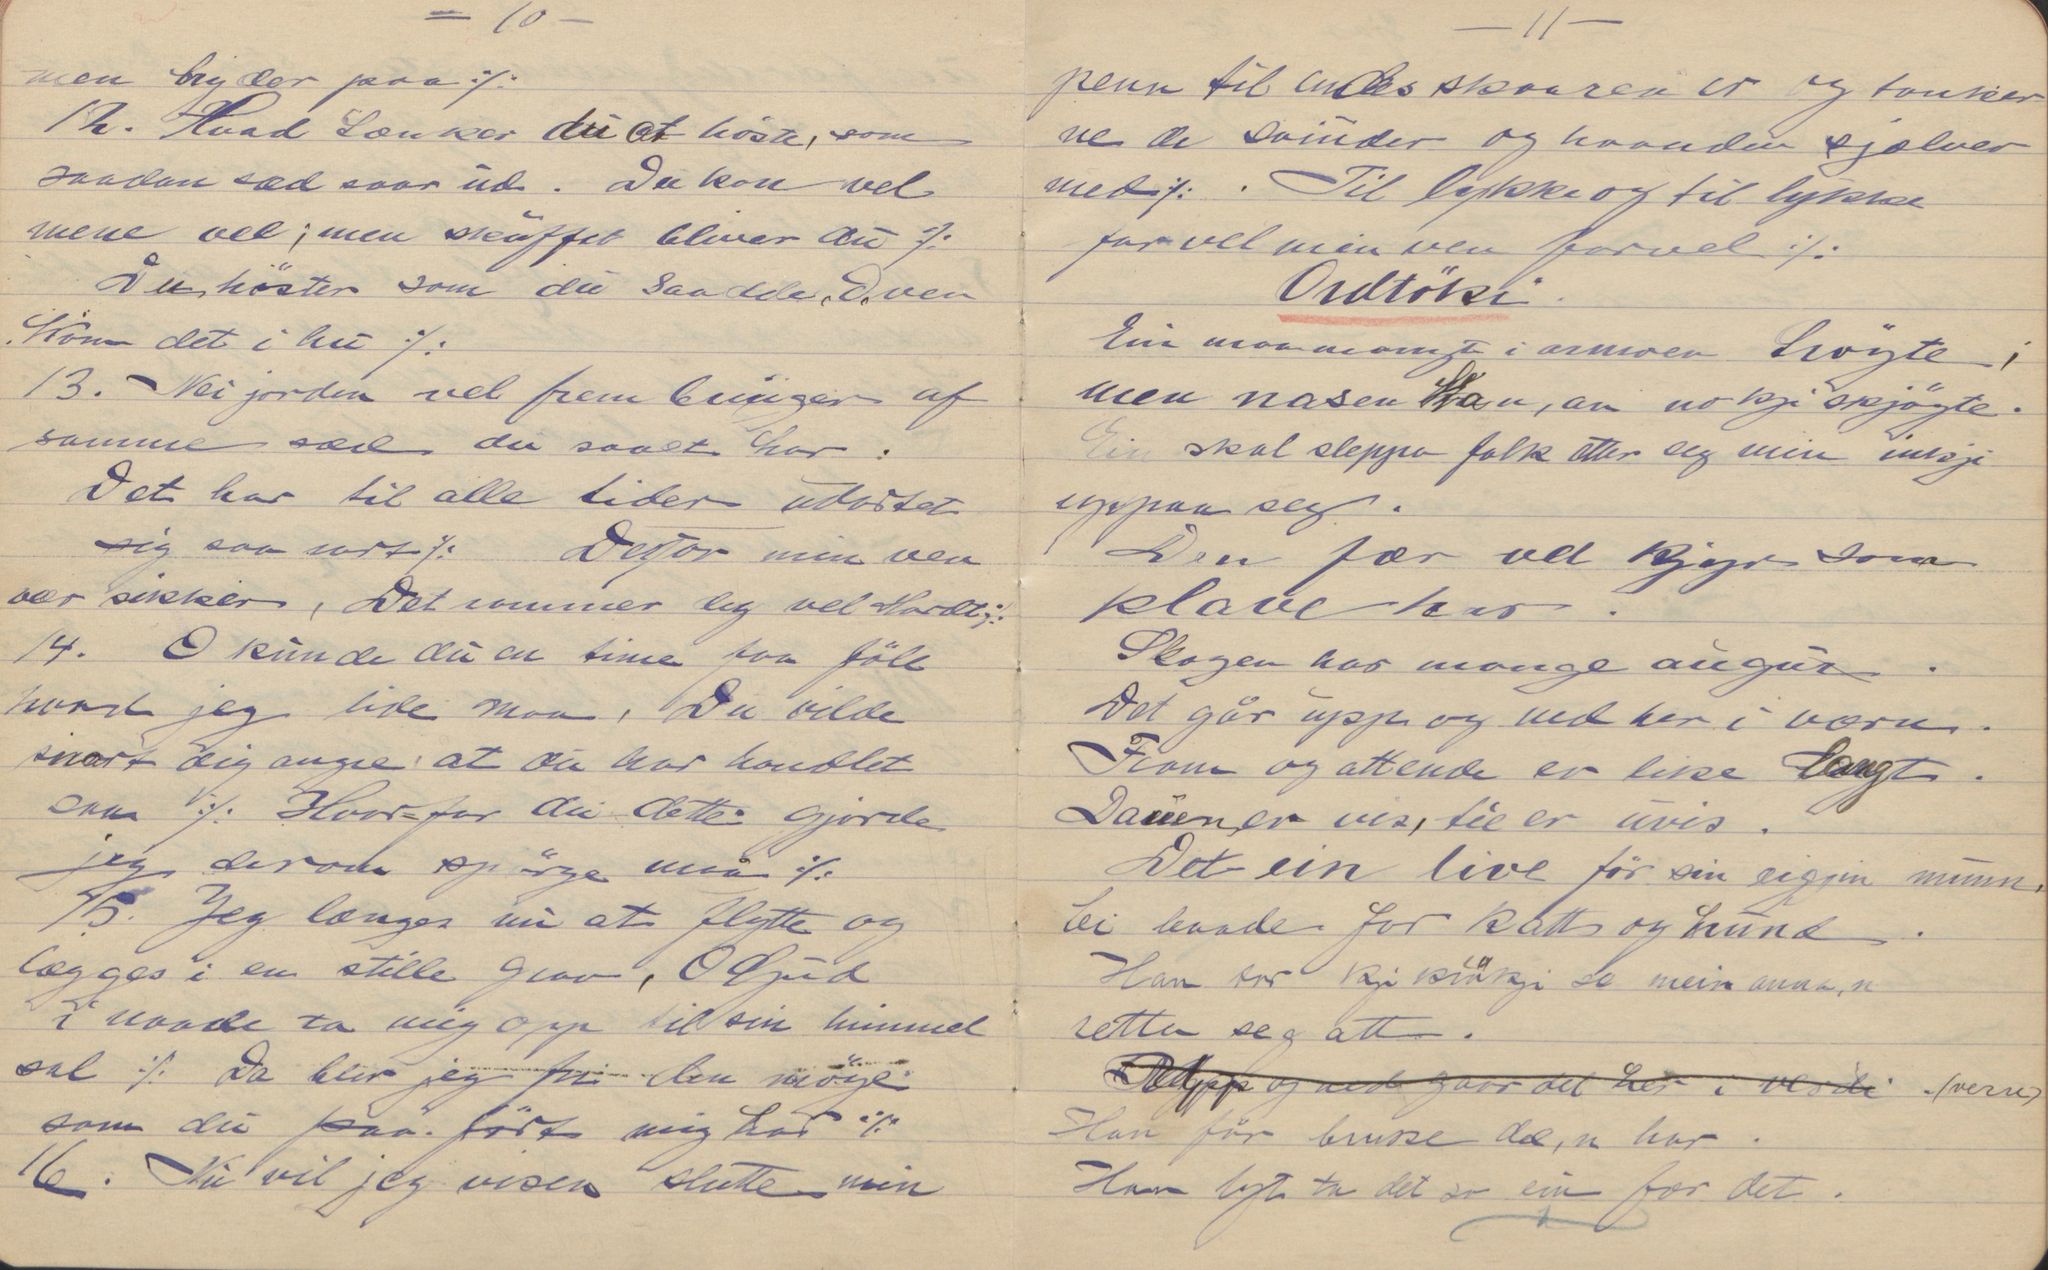 = 10 –
men byder paa :/:
12. Hvad tænker du at höste, som
saadan sæd saar ud. Du kan vel
mene vel; men skuffet bliver du :/:
Du höster som du saadde, O, ven
Kom det i hu :/:
13. Nei jorden vel frembringer af
samme sæd du saaet har.
Det har til alle tider udartet
sig saa rart :/: Derfor min ven
vær sikker, Det rammer dig vel Hardt :/:
14. O kunde du en time faa föle
hvad jeg lide maa, Du vilde
snart dig angre at du har handlet
saa :/: Hvor=for du dette gjorde
jeg derom spörge maa :/:
15. Jeg længes nu at flytte og
lægges i en stille grav, O Gud
i naade ta mig opp til sin himmel
sal :/: Da blir jeg fri den möge
som du paa fört mig har :/:
16. Nu vil jeg visen slutte min
– 11 –
penn til endes skaaren er og tanker
ne de svinder og haanden sjælver
med :/: . Til lykke og til lykke
farvel min ven farvel :/:
Ordtöki.
Ein maa mangt i armoen tröyte,
men nasen kan, an no kji skjöyte.
Ein skal sleppa folk etter seg min inkji
uppaa seg.
Den fær vel kjyr som
klave har.
Skogen har mange augur.
Det går upp og ned her i væru.
Fram og attende er like langt.
Dauen er vis, ti'e er uvis.
Det ein live för sin eigjin munn,
bi baade for katt og hund.
Han tar kji krökji se mein anna, n
retta seg att.
Upp og ned gaar det her i verdi . (veru)
Han får bruke dæ, n har.
Han lyt ta det so ein fær det.